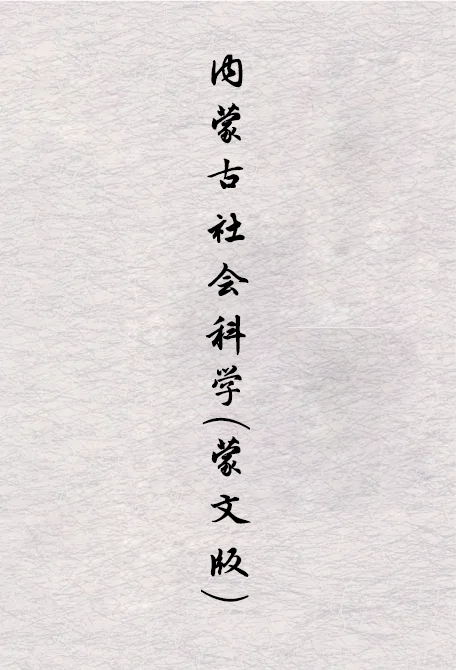 内蒙古社会科学(蒙文版)